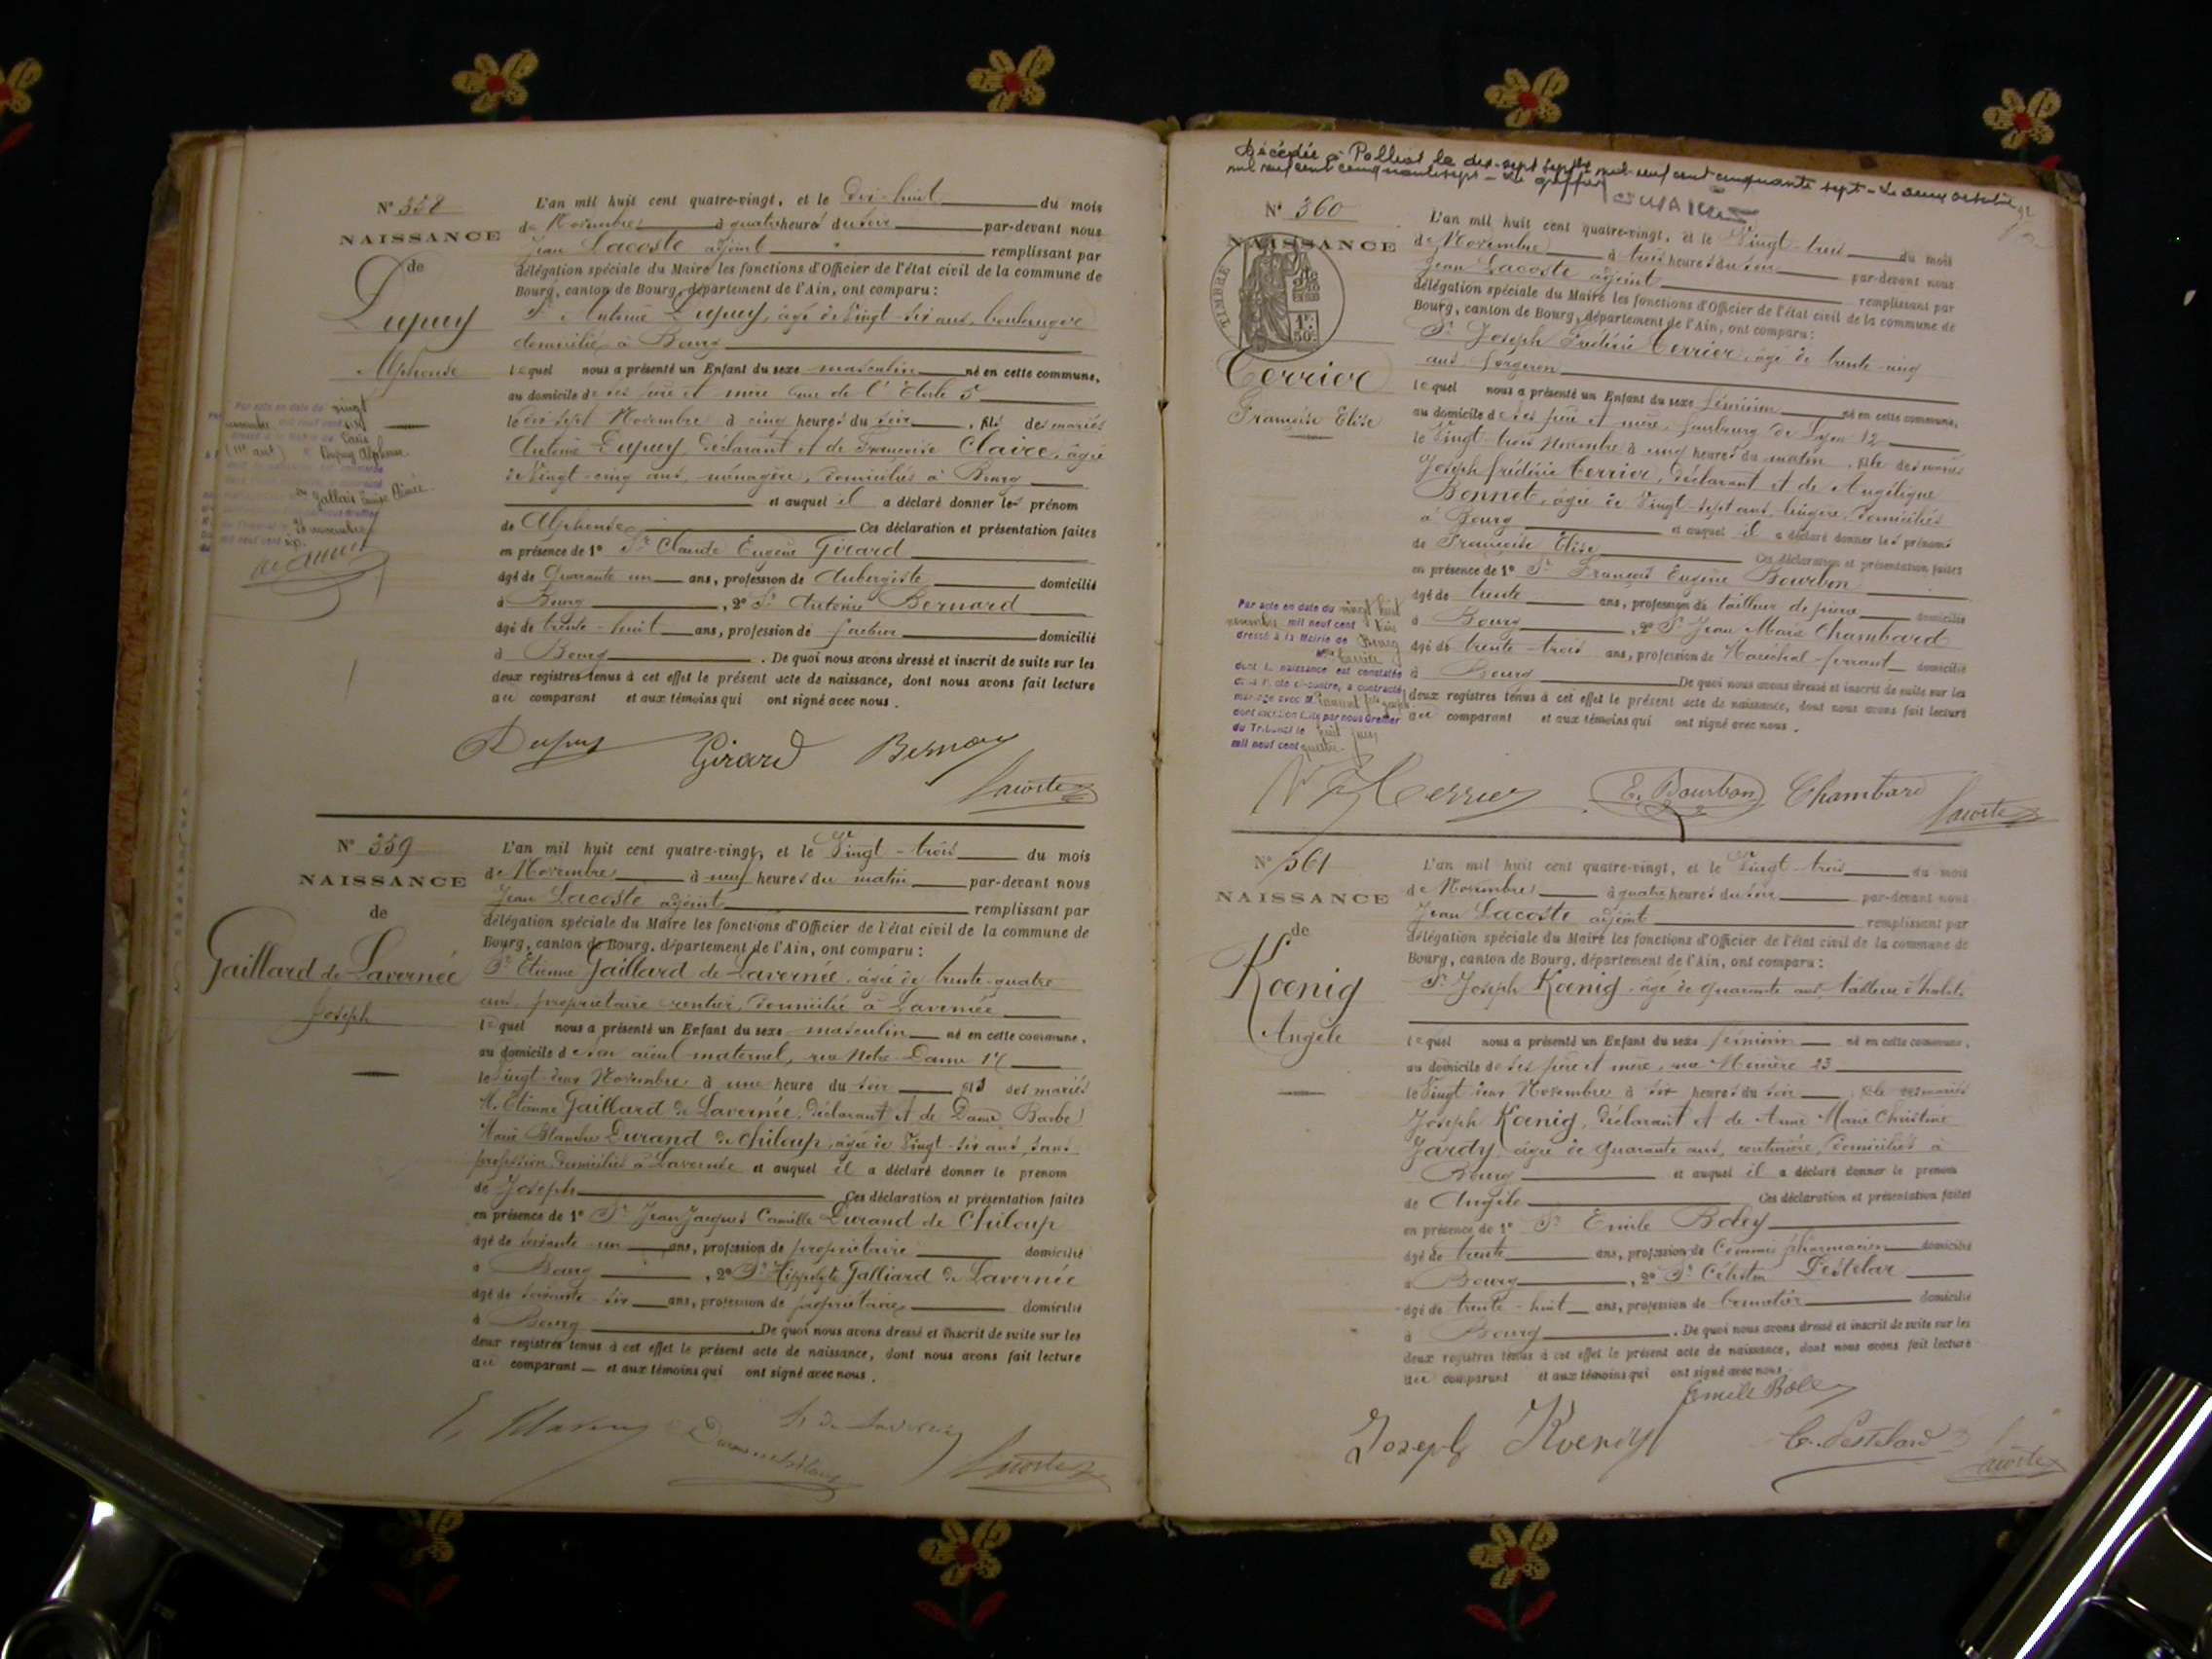 N° 358
NAISSANCE
de
Dupuy
Alphonse
Par acte en date du vingt
novembre mil neuf cent six
dressé à la Mairie de Paris
(11e arrt) Dupuy Alphonse
Gallais Louise Aimée
mil neuf cent six
L'an mil huit cent quatre-vingt, et le Dix-huit du mois
de Novembre à quatre heures du soir par-devant nous
Jean Lacoste adjoint remplissant par
délégation spéciale du Maire les fonctions d'Officier de l'état civil de la commune de
Bourg, canton de Bourg, département de l'Ain, ont comparu :
Sr Antoine Dupuy, âgé de Vingt-six ans, boulanger
domicilié à Bourg
lequel nous a présenté un Enfant du sexe masculin né en cette commune,
au domicile de ses père et mère rue de l'Etoile 5
le dix-sept Novembre à cinq heures du soir, fils des mariés
Antoine Dupuy, déclarant et de Françoise Claire, âgée
de Vingt-cinq ans, ménagère, domiciliés à Bourg
et auquel il a déclaré donner les prénom
de Alphonse Ces déclaration et présentation faites
en présence de 1° Sr Claude Eugène Girard
âgé de Quarante un ans, profession de Aubergiste domicilié
à Bourg, 2° Sr Antoine Bernard
âgé de trente-huit ans, profession de facteur domicilié
à Bourg. De quoi nous avons dressé et inscrit de suite sur les
deux registres tenus à cet effet le présent acte de naissance, dont nous avons fait lecture
au comparant et aux témoins qui ont signé avec nous.
Dupuy Girard Bernard
Lacoste
N° 359
NAISSANCE
de
Gaillard de Lavernée
Joseph
L'an mil huit cent quatre-vingt, et le Vingt-trois du mois
de Novembre à neuf heures du matin par-devant nous
Jean Lacoste adjoint remplissant par
délégation spéciale du Maire les fonctions d'Officier de l'état civil de la commune de
Bourg, canton de Bourg, département de l'Ain, ont comparu :
Sr Etienne Gaillard de Lavernée, âgé de trente-quatre
ans, propriétaire rentier, domicilié à Lavernée
lequel nous a présenté un Enfant du sexe masculin né en cette commune,
au domicile de son aïeul maternel, rue Notre-Dame
le Vingt-deux Novembre à une heure du soir fils des mariés
M. Etienne Gaillard de Lavernée, déclarant et de Dame Barbe
Marie Blanche Durand de Chiloup, âgée de Vingt-six ans, sans
profession domiciliés à Lavernée et auquel il a déclaré donner le prénom
de Joseph Ces déclaration et présentation faites
en présence de 1° Sr Jean Jacques Camille Durand de Chiloup
âgé de soixante-un ans, profession de propriétaire domicilié
à Bourg, 2° Sr Hippolyte Galliard de Lavernée
âgé de soixante-six ans, profession de propriétaire domicilié
à Bourg De quoi nous avons dressé et inscrit de suite sur les
deux registres tenus à cet effet le présent acte de naissance, dont nous avons fait lecture
au comparant et aux témoins qui ont signé avec nous.
Lacoste
Décédée à Polliat le dix-sept septe mil neuf cent cinquante sept - Le deux octobre
mil neuf cent cinquante sept - Le greffier
N° 360
NAISSANCE
TIMBRE
1F
50c
Terrier
Françoise Elise
Par acte en date du vingt huit
novembre mil neuf cent trois
dressé à la Mairie de Bourg
Melle Terrier
dont la naissance est constatée
dans l'acte ci-contre, a contracté
mariage avec M.
dont mention faite par nous Greffier
du Tribunal le huit juin
mil neuf cent quatre
L'an mil huit cent quatre-vingt, et le Vingt-trois du mois
de Novembre à trois heures du soir par-devant nous
Jean Lacoste adjoint remplissant par
délégation spéciale du Maire les fonctions d'Officier de l'état civil de la commune de
Bourg, canton de Bourg, département de l'Ain, ont comparu :
Sr Joseph Frédéric Terrier, âgé de trente-cinq
ans, forgeron
lequel nous a présenté un Enfant du sexe féminin né en cette commune,
au domicile de ses père et mère, faubourg de Lyon 12
le Vingt-trois Novembre à cinq heures du matin, fille des mariés
Joseph Frédéric Terrier, déclarant et de Angélique
Bonnet, âgée de Vingt-sept ans, lingère, domiciliés
à Bourg et auquel il a déclaré donner les prénoms
de Françoise Elise Ces déclaration et présentation faites
en présence de 1° Sr François Eugène Bourbon
âgé de trente ans, profession de tailleur de pierre domicilié
à Bourg, 2° Sr Jean Marie Chambard
âgé de trente-trois ans, profession de Maréchal-ferrant domicilié
à Bourg De quoi nous avons dressé et inscrit de suite sur les
deux registres tenus à cet effet le présent acte de naissance, dont nous avons fait lecture
au comparant et aux témoins qui ont signé avec nous.
Terrier E. Bourbon Chambard
Lacoste
N° 361
NAISSANCE
de
Kœnig
Angèle
L'an mil huit cent quatre-vingt, et le Vingt-trois du mois
de Novembre à quatre heures du soir par-devant nous
Jean Lacoste adjoint remplissant par
délégation spéciale du Maire les fonctions d'Officier de l'état civil de la commune de
Bourg, canton de Bourg, département de l'Ain, ont comparu :
Sr Joseph Kœnig, âgé de quarante ans, tailleur d'habits
lequel nous a présenté un Enfant du sexe féminin né en cette commune,
au domicile de ses père et mère, rue 23
le Vingt-deux Novembre à six heures du soir, fille des mariés
Joseph Kœnig, déclarant et de Anne Marie Christine
Jardy, âgée de quarante ans, couturière, domiciliés à
Bourg et auquel il a déclaré donner le prénom
de Angèle Ces déclaration et présentation faites
en présence de 1° Sr Emile Boley
âgé de trente ans, profession de Commis pharmacien domicilié
à Bourg, 2° Sr Célestin
âgé de trente-huit ans, profession de domicilié
à Bourg. De quoi nous avons dressé et inscrit de suite sur les
deux registres tenus à cet effet le présent acte de naissance, dont nous avons fait lecture
au comparant et aux témoins qui ont signé avec nous.
Emile Boley
Joseph Koenig
Lacoste